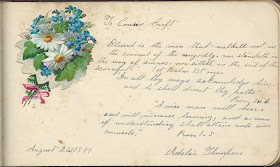 To Cousin
Blessed is the man that walketh not in
the counsel of the ungodly, nor standeth in
the way of sinners, nor sitteth in the seat of the
scornful. 1st Psalm 1st verse
"In all thy ways acknowledge him,
and he shall direct thy paths"
"A wise man will hear,
and will increase learning; and a man
of understanding shall attain unto wise
counsels."
August 21st 1891
Thompson